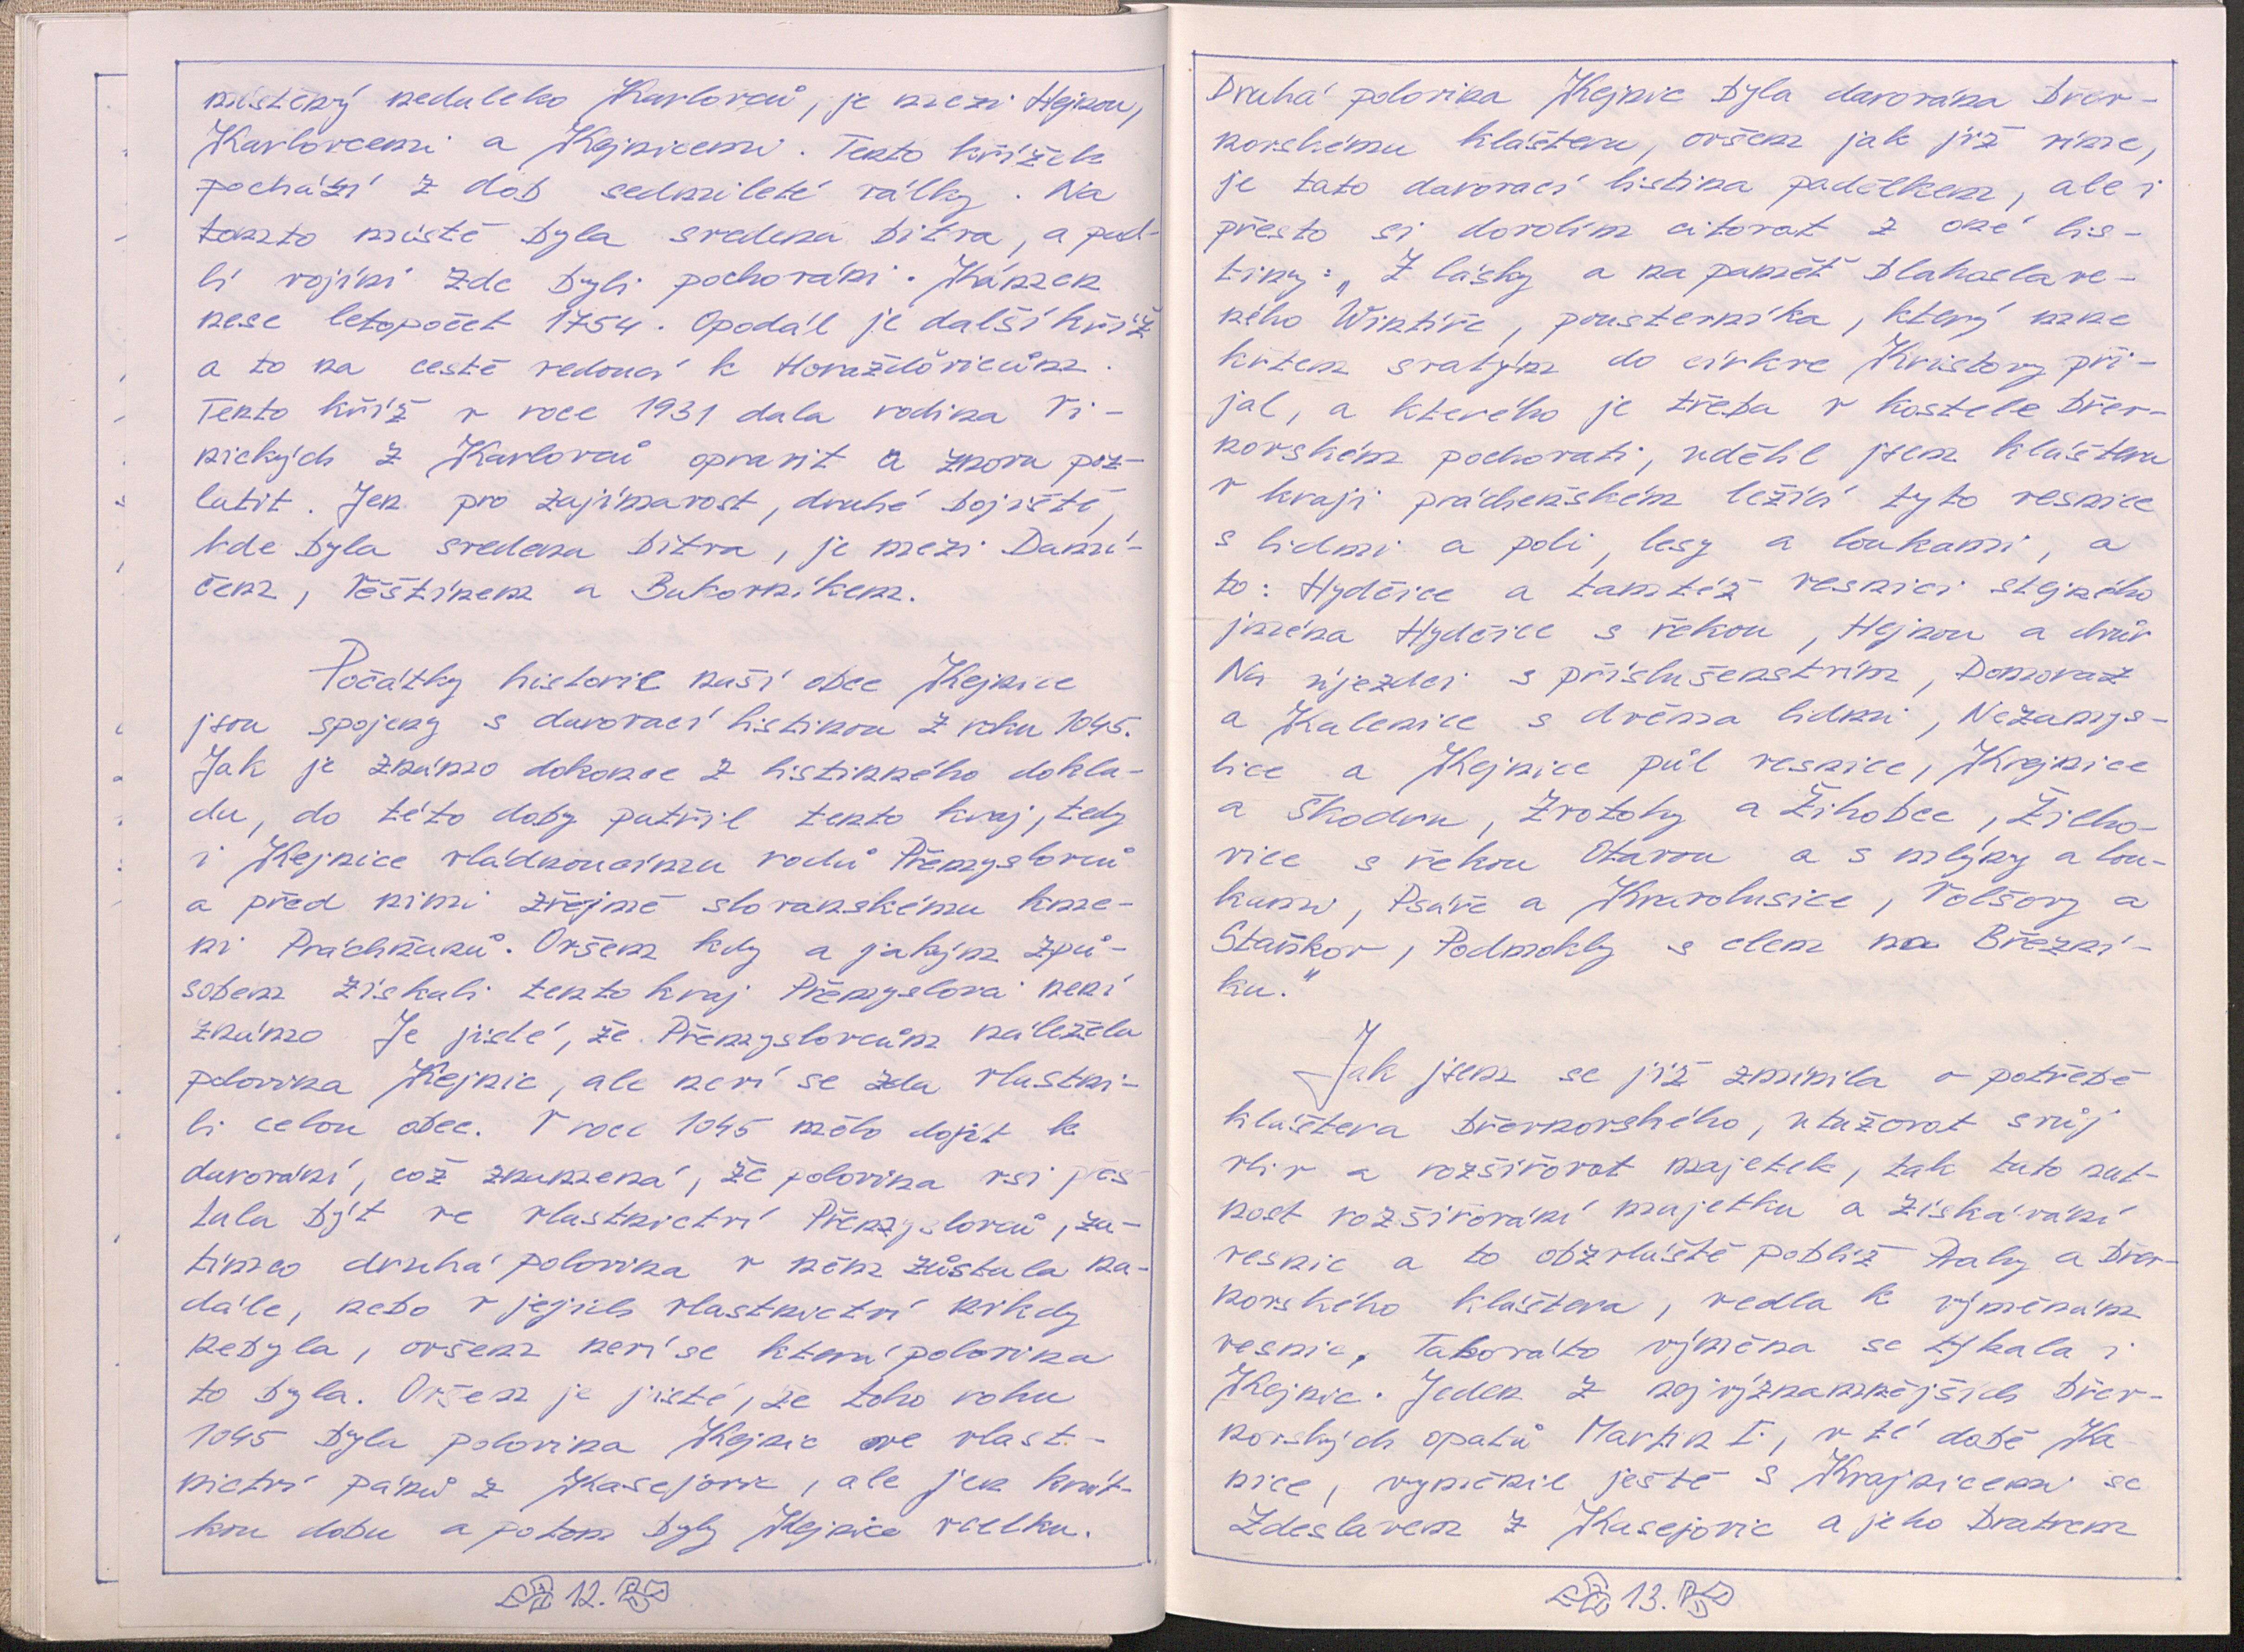 místěný nedaleko Karlovců, je mezi Hejnou,
Karlovcemi a Kejnicemi. Tento křížek
pochází z dob sedmileté války. Na
tomto místě byla svedena bitva, a pad-
lí vojíni zde byli pochováni. Kámen
nese letopočet 1754. Opodál je další kříž
a to na cestě vedoucí k Horažďovicům.
Tento kříž v roce 1931 dala rodina Vi-
nických z Karlovců opravit a znovu poz-
latit. Jen pro zajímavost, druhé bojiště,
kde byla svedena bitva, je mezi Damí-
čem, Věštínem a Bukovníkem.
Počátky historie naší obce Kejnice
jsou spojeny s darovací listinou z roku 1045.
Jak je známo dokonce z listinného dokla-
du, do této doby patřil tento kraj, tedy
i Kejnice vládnoucímu rodů Přemyslovců
a před nimi zřejmě slovanskému kme-
ni Práchňanů. Ovšem kdy a jakým způ-
sobem získali tento kraj Přemyslovci není
známo Je jisté, že Přemyslovcům náležela
polovina Kejnic, ale neví se zda vlastni-
li celou obec. V roce 1045 mělo dojít k
darování, což znamená, že polovina vsi přes
tala být ve vlastnictví Přemyslovců, za-
tímco druhá polovina v něm zůstala na-
dále, nebo v jejich vlastnictví nikdy
nebyla, ovšem neví se která polovina
to byla. Ovšem je jisté, že toho roku
1045 byla polovina Kejnic ve vlast-
nictví pánů z Kasejovic, ale jen krát-
kou dobu a potom byly Kejnice vcelku.
12.
Druhá polovina Kejnic byla darována Břev-
novskému klášteru, ovšem jak již víme,
je tato darovací listina padělkem, ale i
přesto si dovolím citovat z oné lis-
tiny: „Z lásky a na paměť blahoslave-
ného Wintíře, poustevníka, který mne
křtem svatým do církve Kristovy při-
jal, a kterého je třeba v kostele Břev-
novském pochovati, udělil jsem klášteru
v kraji prácheňském ležící tyto vesnice
s lidmi a poli, lesy a loukami, a
to: Hydčice a tamtéž vesnici stejného
jména Hydčice s řekou, Hejnou a dvůr
Na újezdci s příslušenstvím, Domoraz
a Kalenice s dvěma lidmi, Nezamys-
lice a Kejnice půl vesnice, Krejnice
a Škodru, Zrotoky a Žihobec, Žicho-
vice s řekou Otavou a s mlýny a lou-
kami, Psáře a Kvarolusice, Volšovy a
Staňkov, Podmokly s clem na Březní-
ku."
Jak jsem se již zmínila o potřebě
kláštera Břevnovského, utužovat svůj
vliv a rozšiřovat majetek, tak tato nut-
nost rozšiřování majetku a získávání
vesnic a to obzvláště poblíž Prahy a Břev-
novského kláštera, vedla k výměnám
vesnic. Takováto výměna se týkala i
Kejnic. Jeden z nejvýznamnějších Břev-
novských opatů Martin I., v té době Ka
nice, vyměnil ještě s Krajnicemi se
Zdeslavem z Kasejovic a jeho bratrem
13.